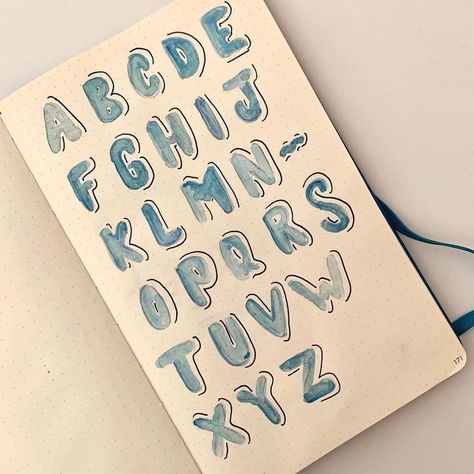 ABCDE
FGHIJ
KLMN~
OPQRS
TUVW
XYZ
171